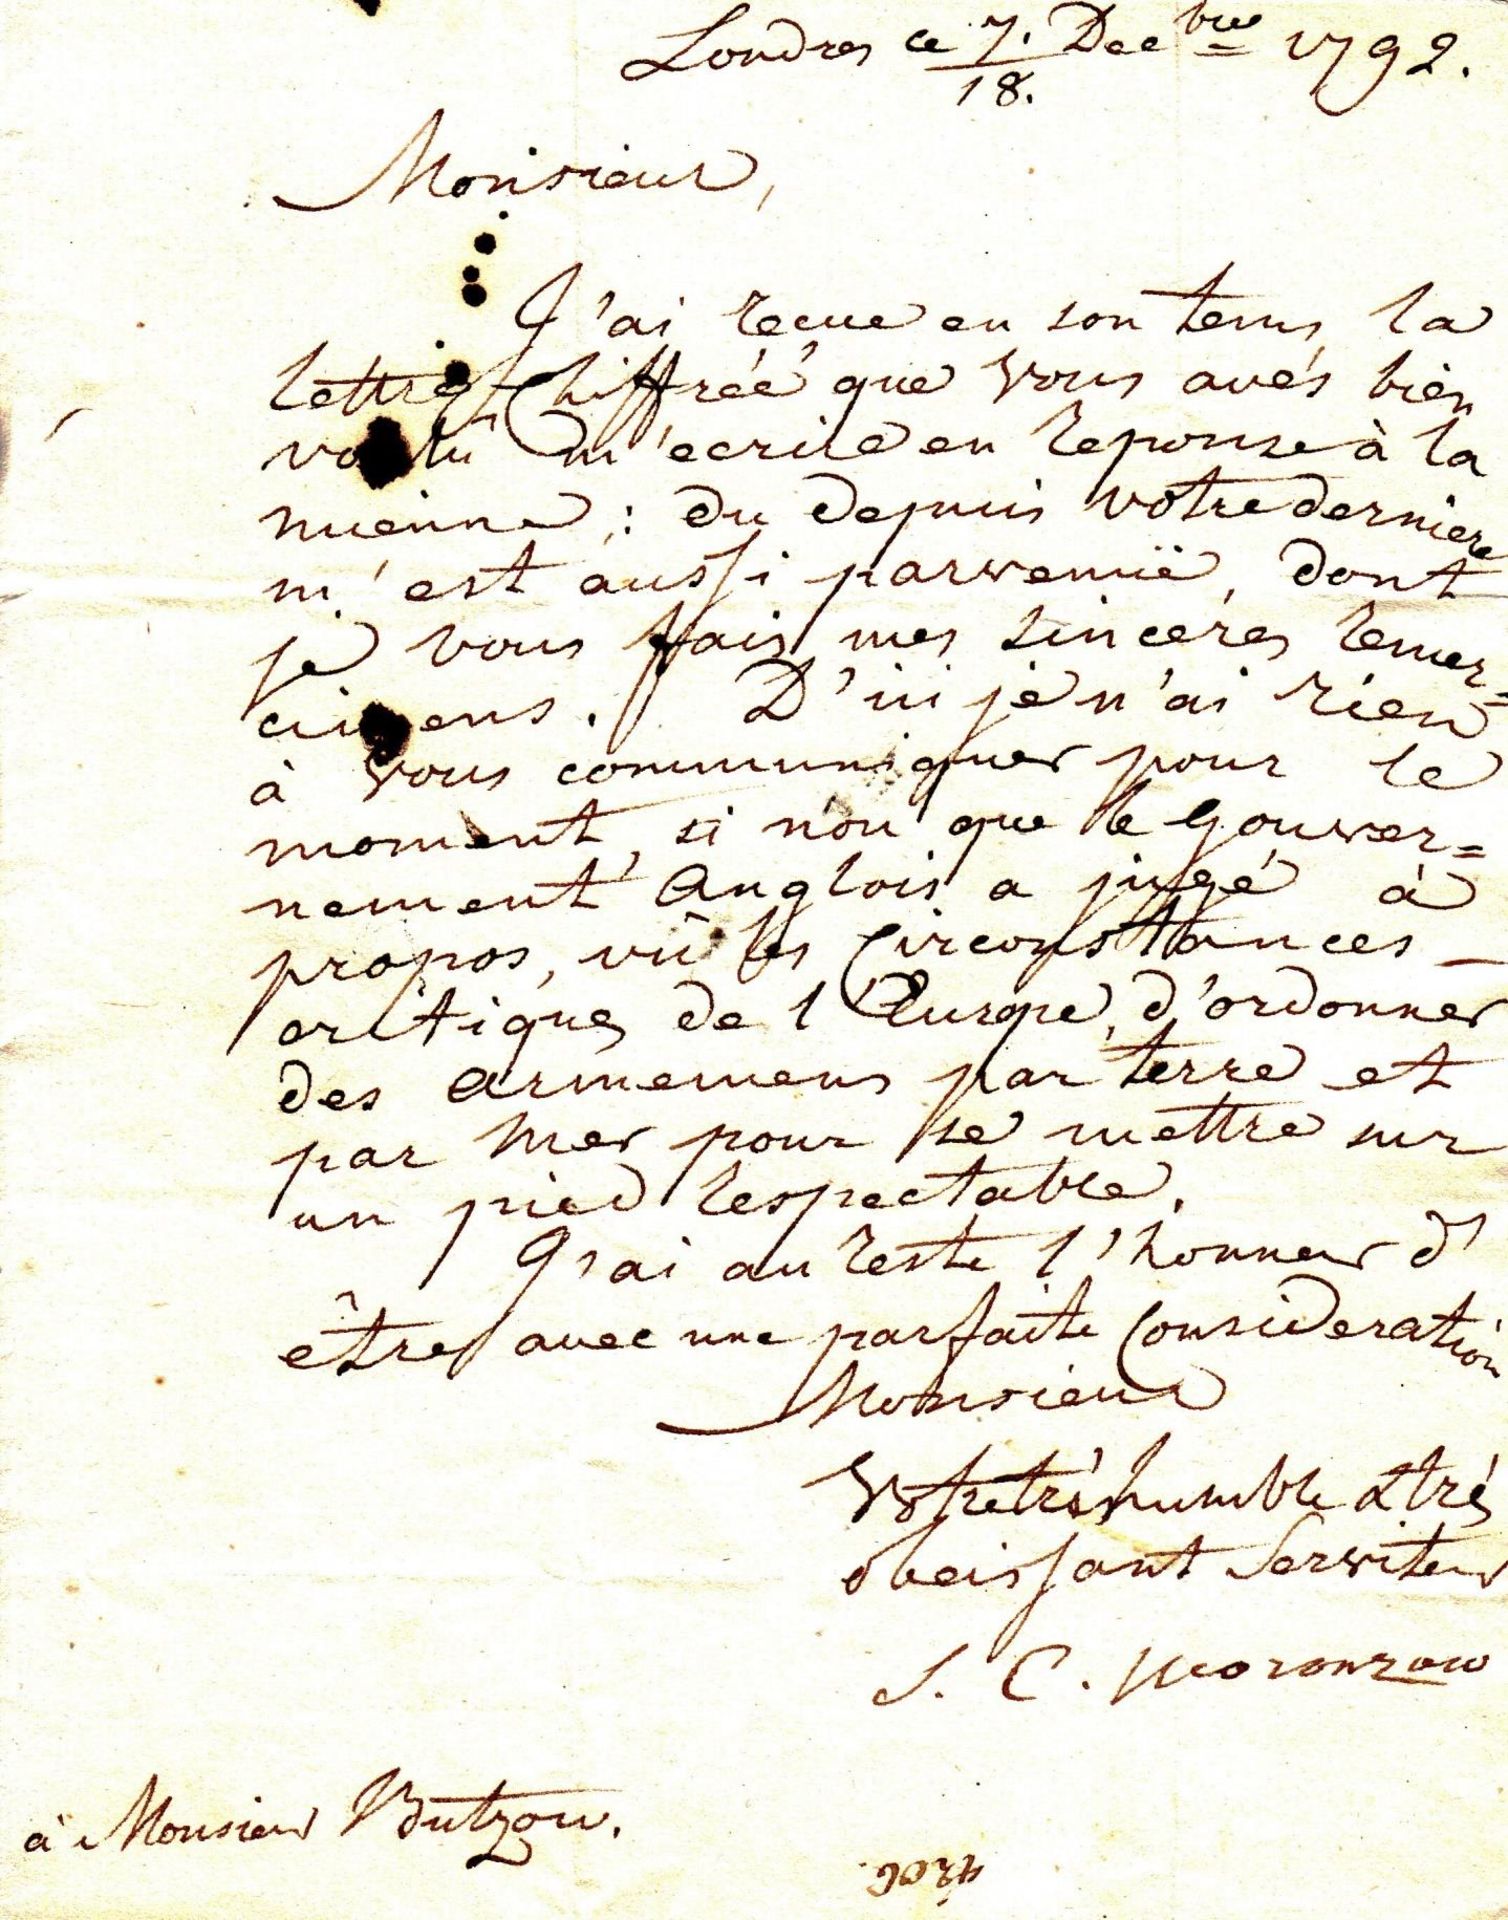 Londres ce 7./18. Dec bre 1792.
Monsieur,
J'ai recue en son tems la
lettre Chiffréé que vous avés bien
voulû m'ecrire en reponse à la
mienne : du depuis votre derniere
m'est aussi parvenuë, dont
je vous fais mes sinceres remer=
cimens. D'ici je n'ai rien
à vous communiquer pour le
moment, si non que le Gouver=
nement Anglois a jugé à
propos, vû les Circonstances
critiques de l'Europe, d'ordonner
des armemens par terre et
par mer pour se mettre sur
un pied respectable.
J'ai au reste l'honneur d'
être avec une parfaite Consideration
Monsieur
Votre trés humble & trés
obeissant Serviteur
S. C. Woronzow
à Monsieur Butzow.